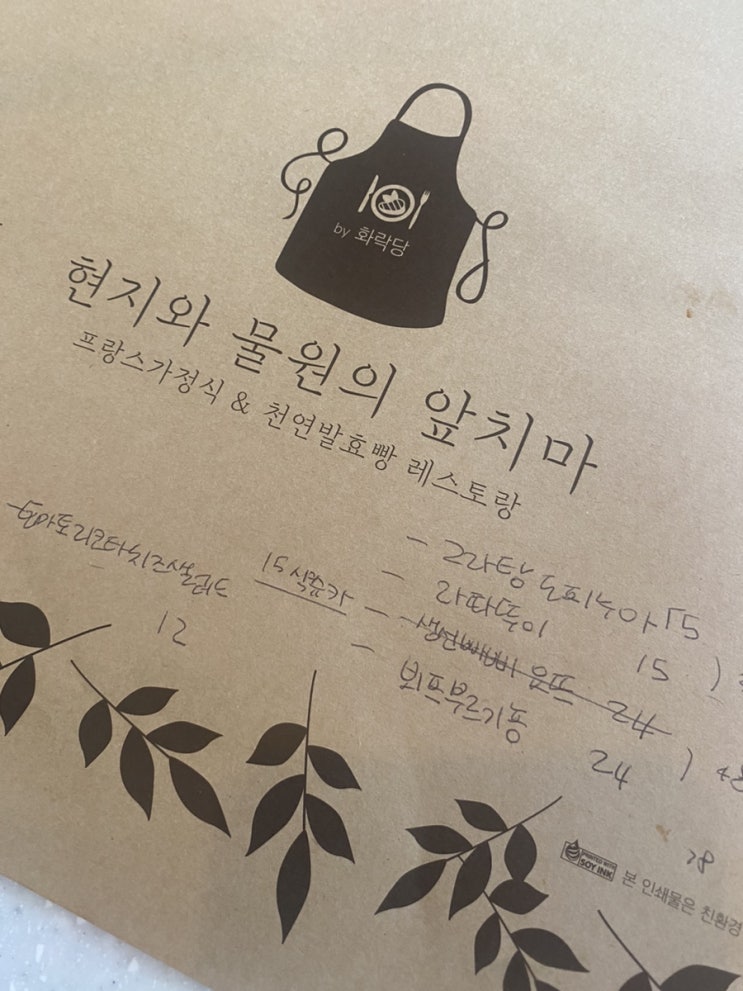 by 화락당
현지와 물원의 앞치마
프랑스가정식 & 천연발효빵 레스토랑
- 그라탕 도피누아 15
- 라따뚜이 15
토마토리코타치즈샐러드
12
15 식쭝카
24
- 뵈프부르기뇽
24
28
PRINTED WITH
SOY INK
본 인쇄물은 친환경